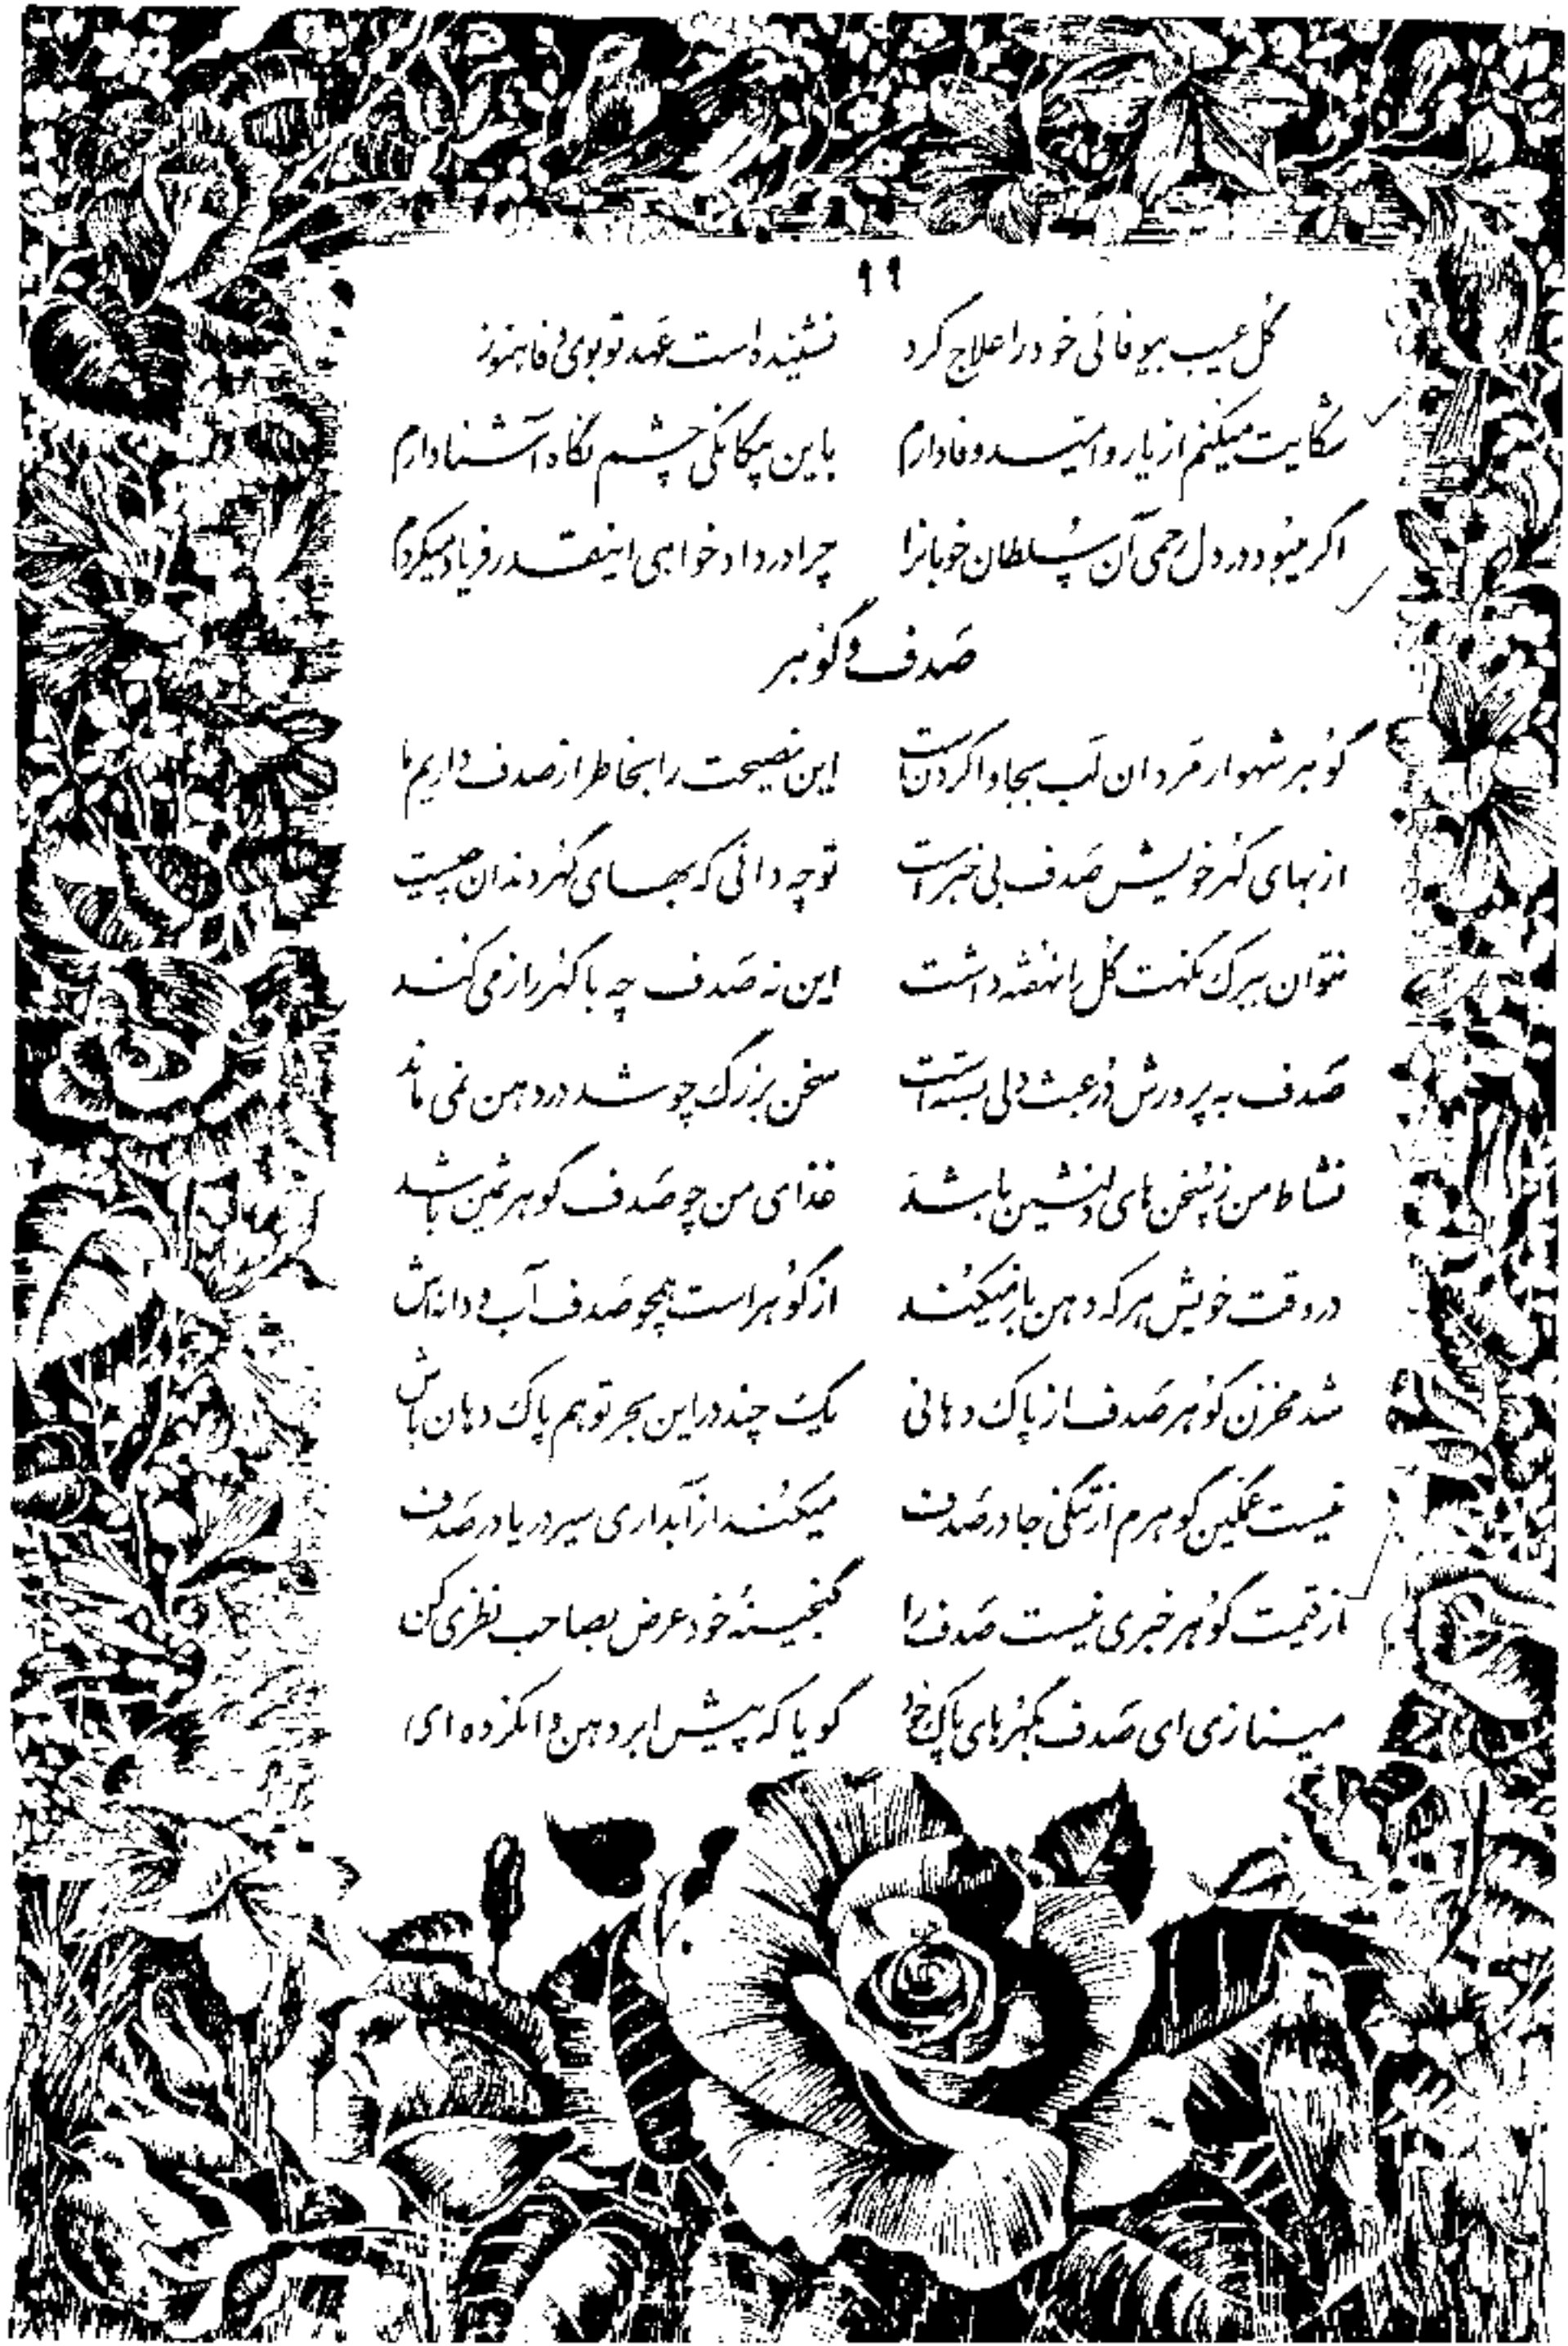 ۹۹
گل عیب بیوفائی خود را علاج کرد نشنیده است عهد تو بوی وفا هنوز
شکایت میکنم از یار و امید وفا دارم باین بیگانگی چشم نگاه آشنا دارم
اگر میبود در دل رحمی آن سلطان خوبانرا چرا در دادخواهی اینقدر فریاد میکردم
صدف و گوهر
گوهر شهوار مردان لب بجا وا کردن است این نصیحت را بخاطر از صدف داریم ما
از بهای گهر خویش صدف بی خبر است تو چه دانی که بهای گهر دندان چیست
نتوان ببرگ نکهت گل را نهفته داشت این نه صدف چه با گهر راز می کنند
صدف به پرورش در عبث دلی بسته است سخن بزرگ چو شد در دهن نمی ماند
نشاط من ز سخن های دلنشین باشد غذای من چو صدف گوهر ثمین باشد
در وقت خویش هر که دهن باز میکند از گوهر است همچو صدف آب و دانه اش
شد مخزن گوهر صدف از پاک دهانی یک چند در این بحر تو هم پاک دهان باش
نیست غمگین گوهرم از تنگی جا در صدف میکند از آبداری سیر دریا در صدف
از قیمت گوهر خبری نیست صدف را گنجینه خود عرض بصاحب نظری کن
مینازی ای صدف بگهرهای پاک خود گویا که پیش ابر دهن وا نکرده ای